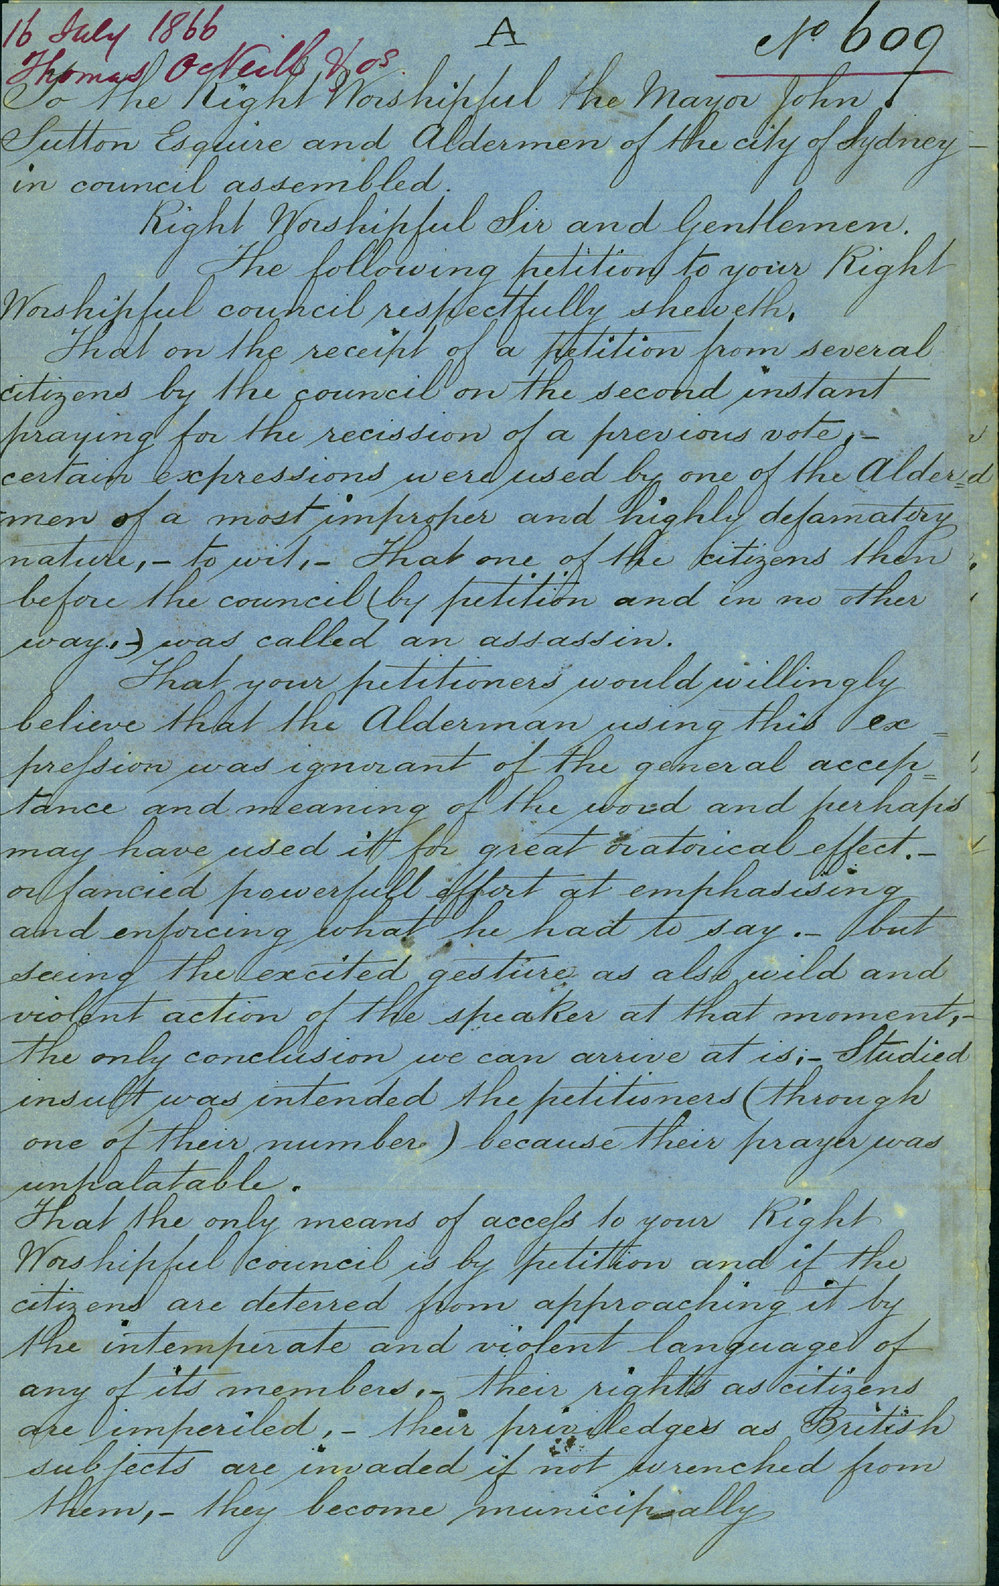 16 July 1866
A
No 609
Thomas O'Neill & os
To the Right Worshipful the Mayor John
Sutton Esquire and Aldermen of the city of Sydney
in council assembled.
Right Worshipful Sir and Gentlemen.
The following petition to your Right
Worshipful council respectfully sheweth.
That on the receipt of a petition from several
citizens by the council on the second instant
praying for the recission of a previous vote,-
certain expressions were used by one of the Alder=
=men of a most improper and highly defamatory
nature,- to wit,- That one of the citizens then
before the council (by petition and in no other
way.-) was called an assassin.
That your petitioners would willingly
believe that the Alderman using this ex=
pression was ignorant of the general accep=
tance and meaning of the word and perhaps
may have used it for great oratorical effect.-
or fancied powerfull effort at emphasising
and enforcing what he had to say.- but
seeing the excited gesture as also wild and
violent action of the speaker at that moment,-
the only conclusion we can arrive at is;- Studied
insult was intended the petitioners (through
one of their number) because their prayer was
unpalatable.
That the only means of access to your Right
Worshipful council is by petition and if the
citizens are deterred from approaching it by
the intemperate and violent language of
any of its members.- their rights as citizens
are imperiled,- their priviledges as British
subjects are invaded if not wrenched from
them,- they become municipally